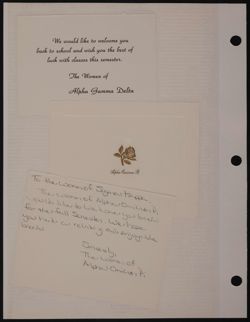 We would like to welcome you
back to school and wish you the best of
luck with classes this semester.
The Women of
Alpha Gamma Delta
Alpha Omicron Pi
To the women of
The women of Alpha Omicron Pi
would like to welcome you back
for the fall Semester. We hope
you had a relaxing and enjoyable
break!
Sincerely,
The women of
Alpha Omicron Pi